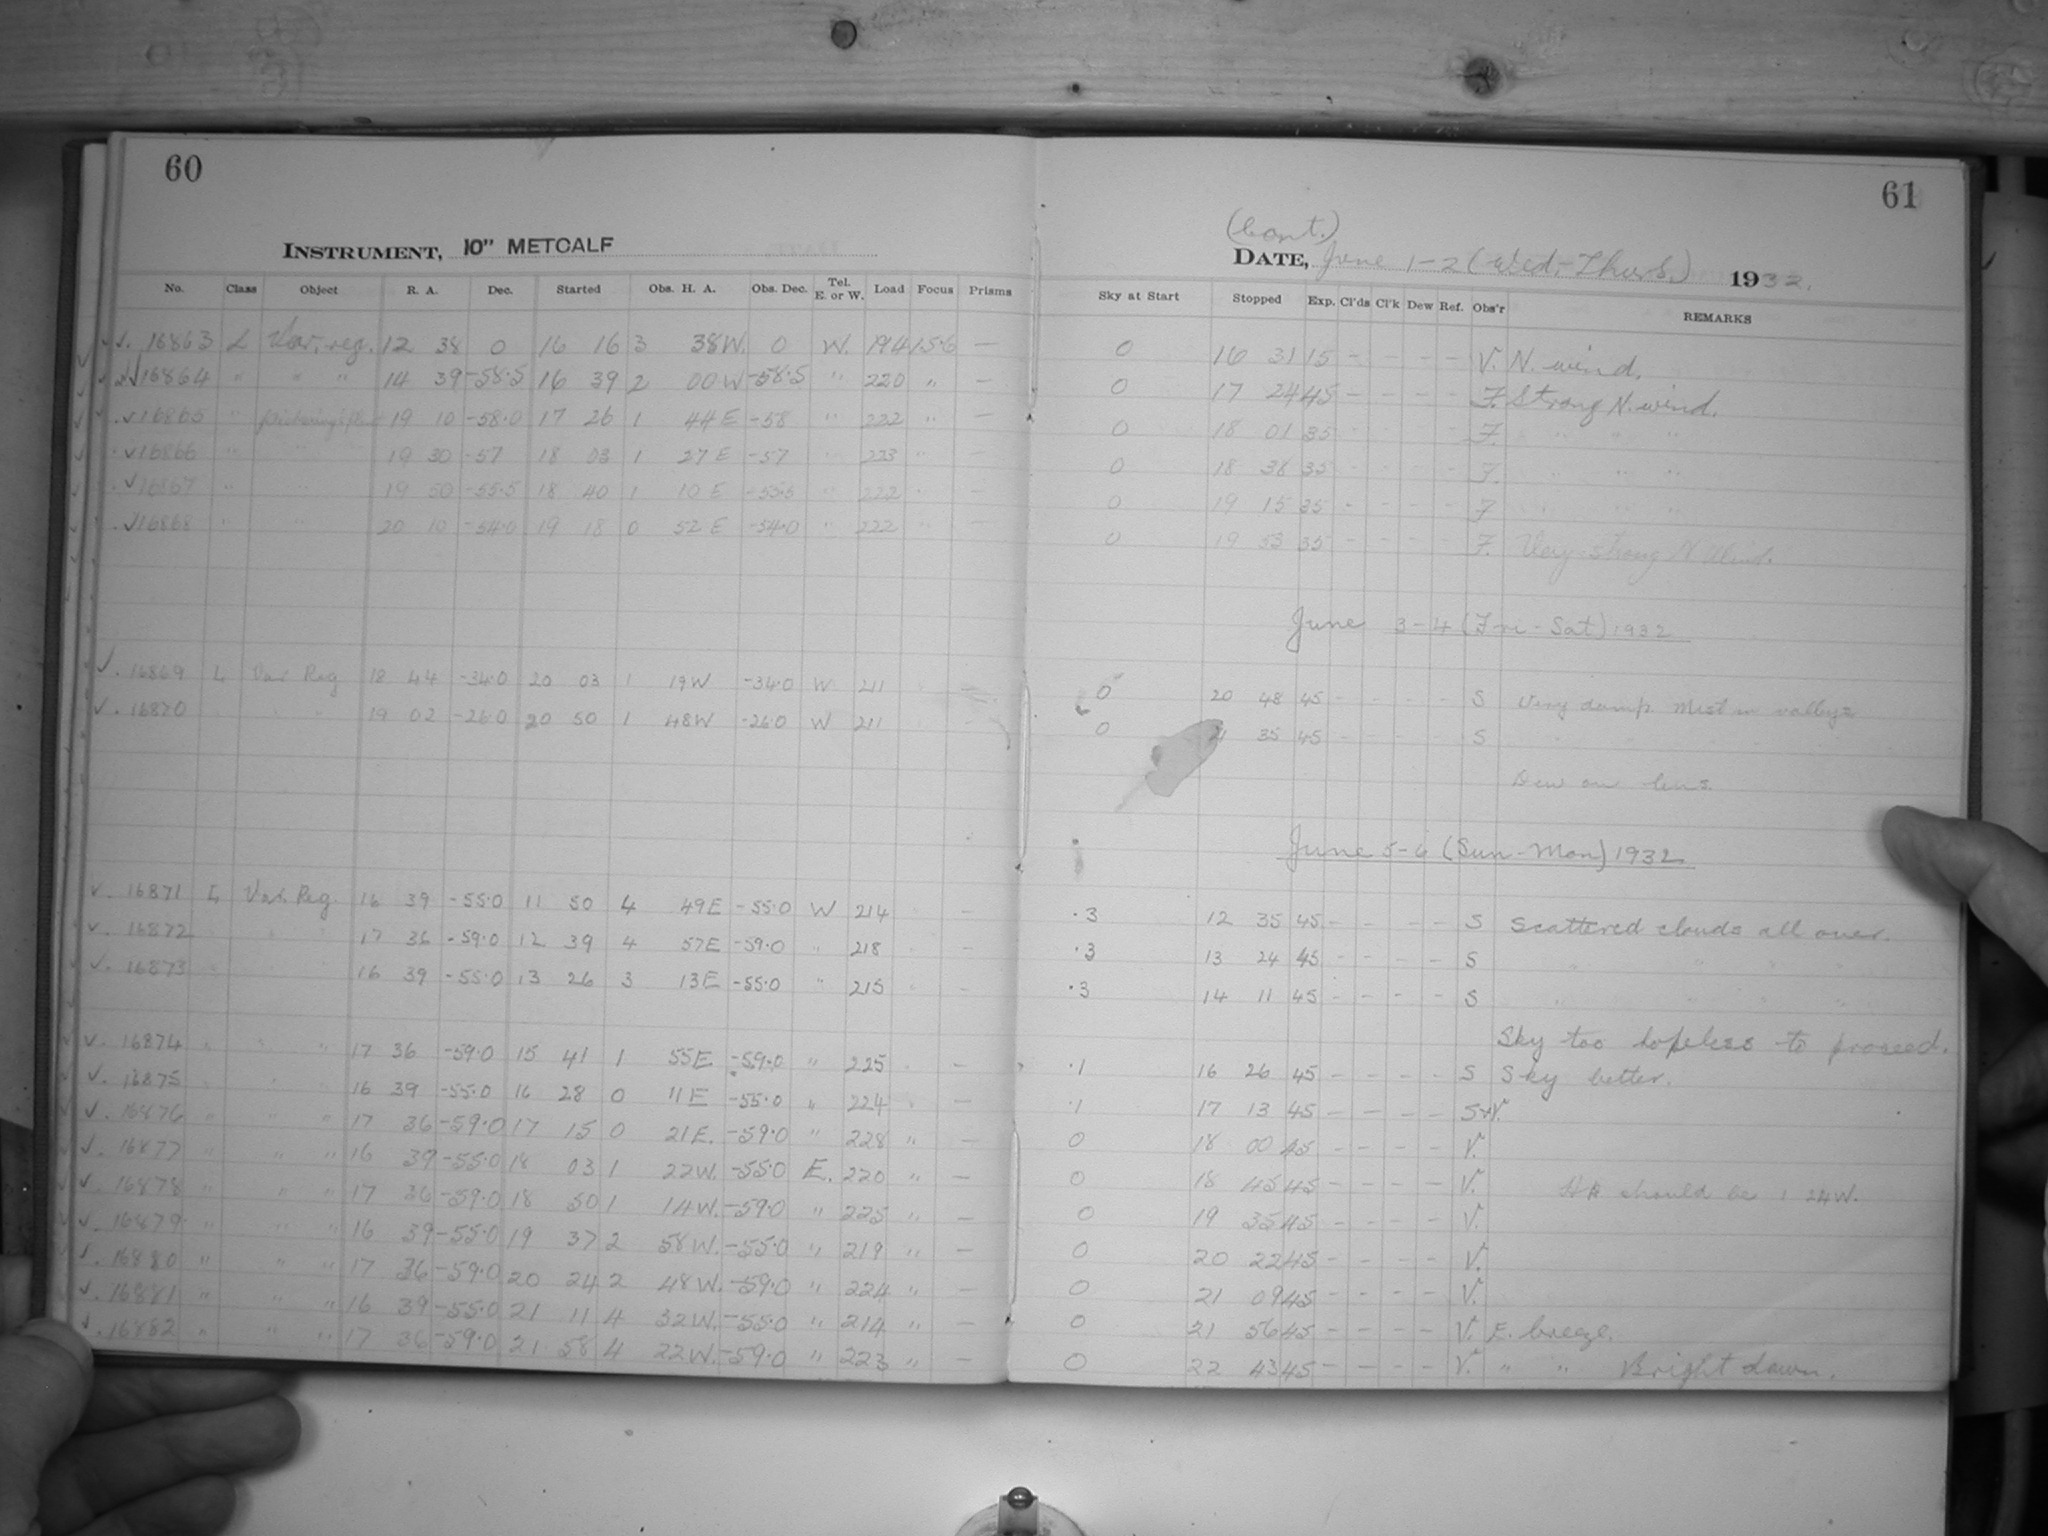 60
INSTRUMENT, 10" METCALF
No. Class Object R. A. Dec. Started Obs. H. A. Obs. Dec. Tel. E. or W. Load Focus Prisms
✓. 16863 L Var. reg. 12 38 0 16 16 3 38W. 0 W. 194 15.6 —
✓ 16864 " " " 14 39 -58.5 16 39 2 00W -58.5 " 220 " —
✓ 16865 " 19 10 -58.0 17 26 1 44E -58 " 222 " —
✓ 16866 " " 19 30 -57 18 03 1 27E -57 " 223 " —
✓ 16867 " " 19 50 -55.5 18 40 1 10E -55.5 " 222 " —
✓ 16868 " " 20 10 -54.0 19 18 0 52E -54.0 " 222 " —
✓. 16869 L Var Reg 18 44 -34.0 20 03 1 19W -34.0 W 211 —
✓. 16870 19 02 -26.0 20 50 1 48W -26.0 W 211 —
✓. 16871 L Var. Reg. 16 39 -55.0 11 50 4 49E -55.0 W 214 —
✓. 16872 17 36 -59.0 12 39 4 57E -59.0 " 218 —
✓. 16873 16 39 -55.0 13 26 3 13E -55.0 " 215 —
✓. 16874 " " " 17 36 -59.0 15 41 1 55E -59.0 " 225 —
✓. 16875 16 39 -55.0 16 28 0 11E -55.0 " 224 " —
✓. 16876 " " " 17 36 -59.0 17 15 0 21E. -59.0 " 228 " —
✓. 16877 " " " 16 39 -55.0 18 03 1 22W. -55.0 E. 220 " —
✓. 16878 " " " 17 36 -59.0 18 50 1 14W. -59.0 " 225 " —
✓. 16879 " " " 16 39 -55.0 19 37 2 58W. -55.0 " 219 " —
✓. 16880 " " " 17 36 -59.0 20 24 2 48W. -59.0 " 224 " —
✓. 16881 " " " 16 39 -55.0 21 11 4 32W. -55.0 " 214 " —
✓. 16882 " " " 17 36 -59.0 21 58 4 22W. -59.0 " 223 " —
61
(Cont.)
DATE, June 1-2 (Wed.-Thurs.) 1932.
Sky at Start Stopped Exp. Cl'ds Cl'k Dew Ref. Obs'r REMARKS
0 16 31 15 - - - - V. N. wind.
0 17 24 45 - - - - F. Strong N. wind.
0 18 01 35 - - - - F. " " "
0 18 38 35 - - - - F. " " "
0 19 15 35 - - - - F " " "
0 19 53 35 - - - - F. Very strong N Wind.
June 3-4 (Fri-Sat) 1932
0 20 48 45 - - - - S Very damp Mist in valleys
0 21 35 45 - - - - S
Dew on lens.
June 5-6 (Sun-Mon) 1932
.3 12 35 45 - - - - S Scattered clouds all over.
.3 13 24 45 - - - - S " " " "
.3 14 11 45 - - - - S " " " "
Sky too hopeless to proceed.
.1 16 26 45 - - - - S Sky better.
.1 17 13 45 - - - - S+V.
0 18 00 45 - - - - V.
0 18 48 45 - - - - V. HA should be 1 24W.
0 19 35 45 - - - - V.
0 20 22 45 - - - - V.
0 21 09 45 - - - - V.
0 21 56 45 - - - - V. E. breeze.
0 22 43 45 - - - - V. " " Bright dawn.